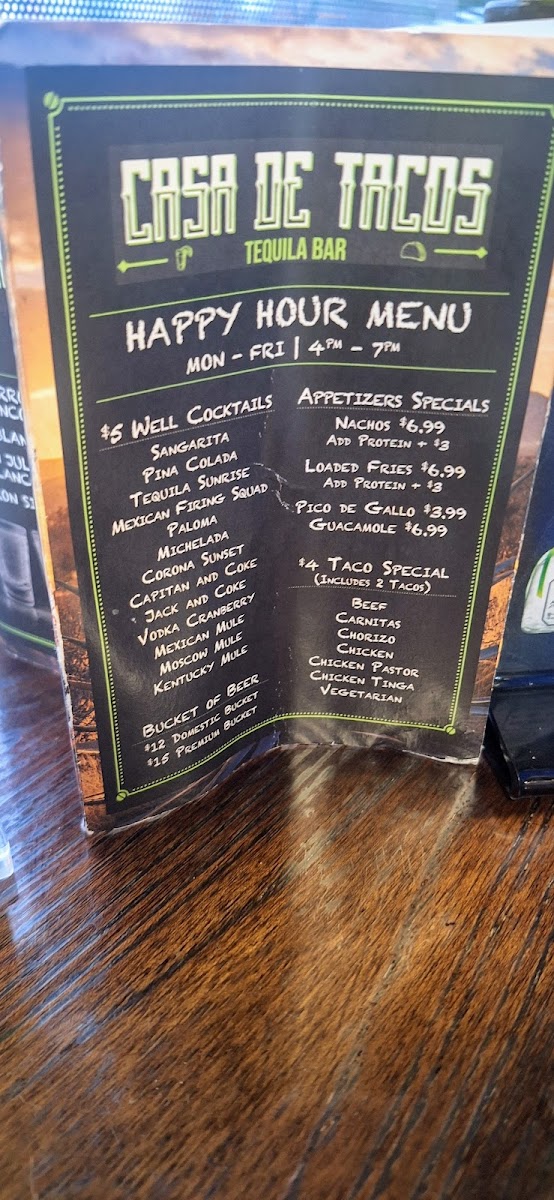 CASA DE TACOS
TEQUILA BAR
HAPPY HOUR MENU
MON - FRI | 4PM - 7PM
$5 WELL COCKTAILS
SANGARITA
PINA COLADA
TEQUILA SUNRISE
MEXICAN FIRING SQUAD
PALOMA
MICHELADA
CORONA SUNSET
CAPITAN AND COKE
JACK AND COKE
VODKA CRANBERRY
MEXICAN MULE
MOSCOW MULE
KENTUCKY MULE
BUCKET OF BEER
$12 DOMESTIC BUCKET
$15 PREMIUM BUCKET
APPETIZERS SPECIALS
NACHOS $6.99
ADD PROTEIN + $3
LOADED FRIES $6.99
ADD PROTEIN + $3
PICO DE GALLO $3.99
GUACAMOLE $6.99
$4 TACO SPECIAL
(INCLUDES 2 TACOS)
BEEF
CARNITAS
CHORIZO
CHICKEN
CHICKEN PASTOR
CHICKEN TINGA
VEGETARIAN